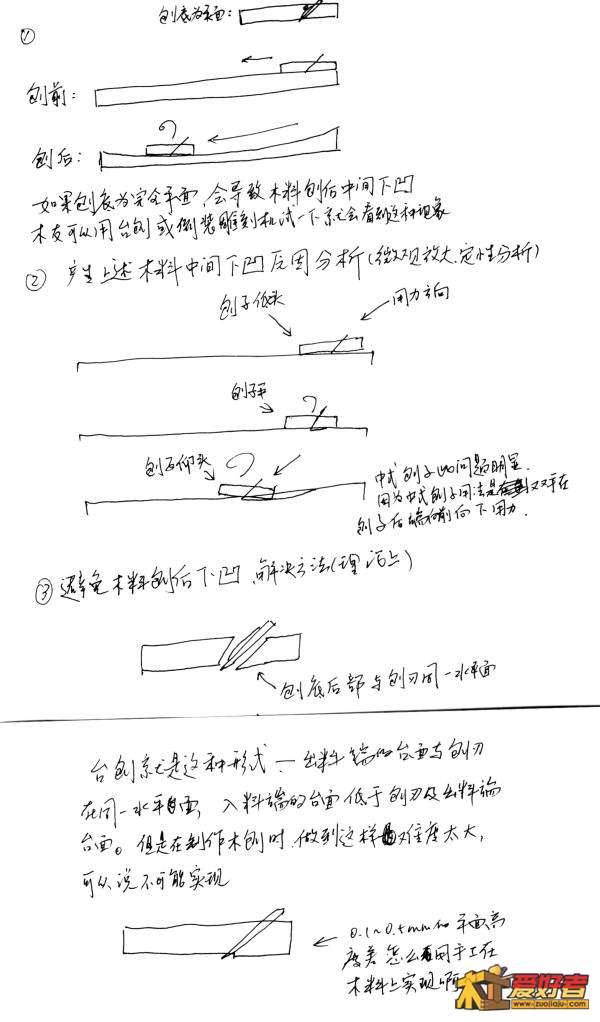 刨底为平面:
①
刨前:
刨后:
如果刨底为完全平面,会导致木料刨后中间下凹
木友可以用台刨或倒装雕刻机试一下就会看到这种现象
② 产生上述木料中间下凹原因分析(微观放大,定性分析)
刨子低头
用力方向
刨子平
刨子仰头
中式刨子此问题明显.
因为中式刨子用法是双手在
刨子后端向前向下用力.
③ 避免木料刨后下凹,解决方法(理论上)
刨底后部与刨刃同一水平面
台刨就是这种形式—出料端的台面与刨刃
在同一水平面,入料端的台面低于刨刃及出料端
台面。但是在制作木刨时,做到这样难度太大,
可以说不可能实现
0.1~0.5mm的平面高
度差怎么用手工在
木料上实现啊
爱好者
www.zuojiaju.com